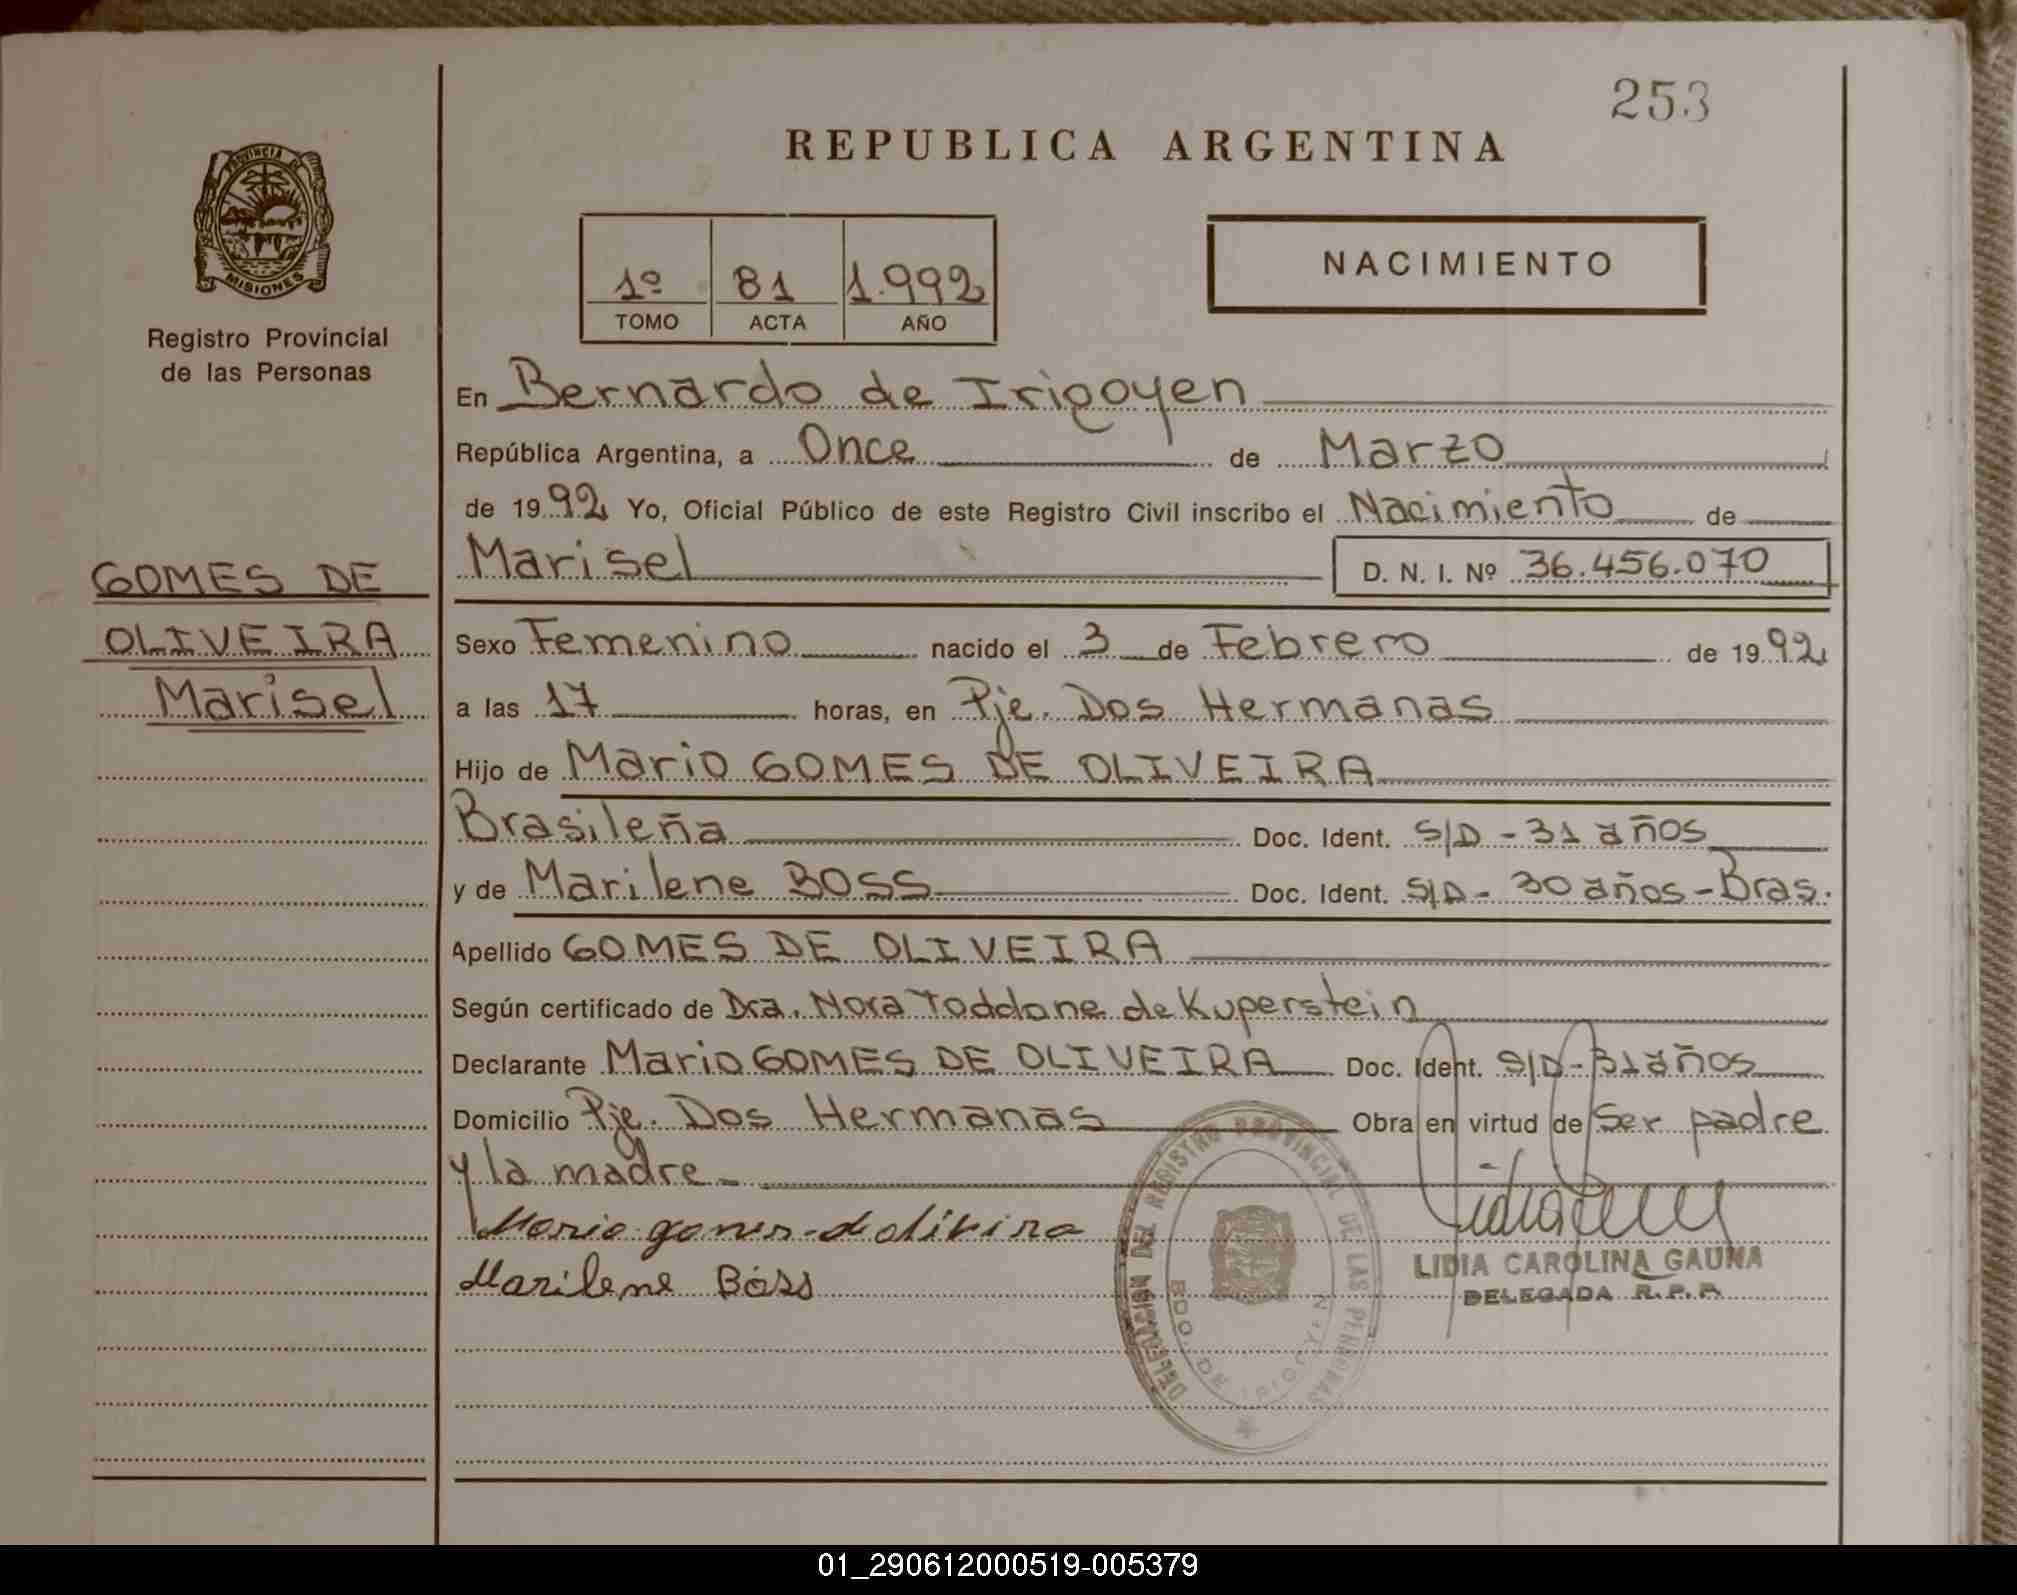 253
REPUBLICA ARGENTINA
PROVINCIA DE MISIONES
Registro Provincial
de las Personas
1º 81 1.992
TOMO ACTA AÑO
NACIMIENTO
En Bernardo de Irigoyen
República Argentina, a Once de Marzo
de 1992 Yo, Oficial Público de este Registro Civil inscribo el Nacimiento de
Marisel D. N. I. Nº 36.456.070
GOMES DE
OLIVEIRA
Marisel
Sexo Femenino nacido el 3 de Febrero de 1992
a las 17 horas, en Pje. Dos Hermanas
Hijo de Mario GOMES DE OLIVEIRA
Brasileña Doc. Ident. S/D - 31 años
y de Marilene BOSS Doc. Ident. S/D - 30 años - Bras.
Apellido GOMES DE OLIVEIRA
Según certificado de Dra. Nora Toddone de Kuperstein
Declarante Mario GOMES DE OLIVEIRA Doc. Ident. S/D - 31 años
Domicilio Pje. Dos Hermanas Obra en virtud de Ser padre
y la madre -
Mario
Marilene Boss
DELEGACION DEL REGISTRO PROVINCIAL DE LAS PERSONAS
BDO. DE IRIGOYEN
LIDIA CAROLINA GAUNA
DELEGADA R.P.P.
01_290612000519-005379